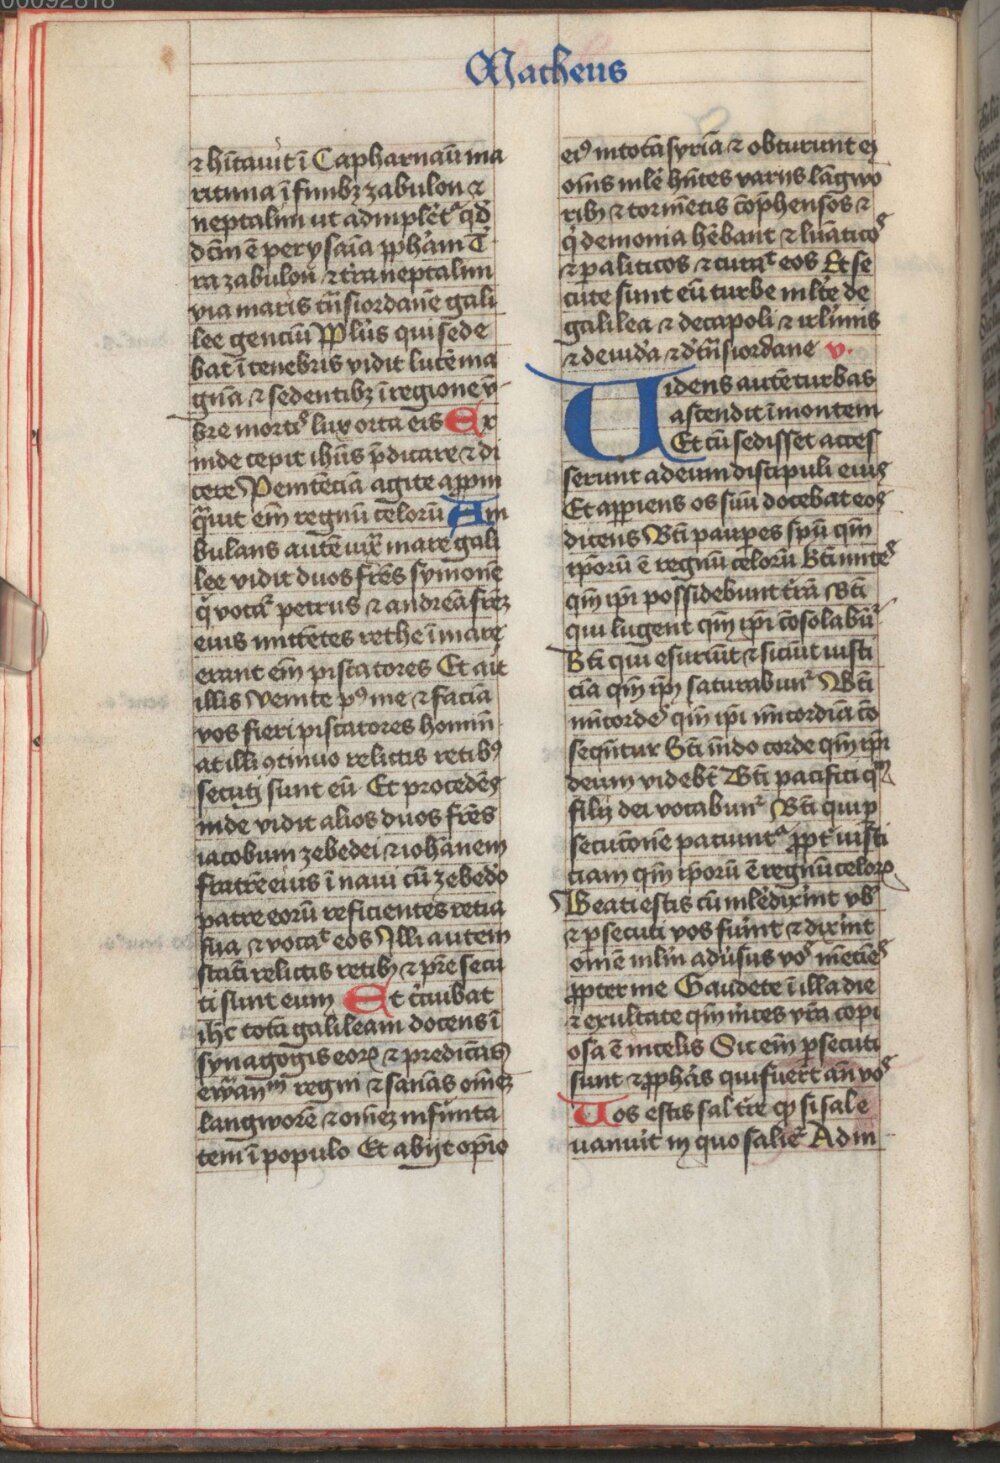 00092818
Matheus
⁊ hītauit ī Capharnaū ma
ritima ī finibꝫ zabulon ⁊
neptalim ut adīpleret᷑ qd̄
dcm̄ ē per ysaiā ꝓph̄am T᷑
ra zabulon ⁊ tr̄a neptalim
via maris tn̄s iordanē gali
lee genciū Pplūs qui sede
bat ī tenebris vidit lucē ma
gnā ⁊ sedentibꝫ ī regione v̄
bre mortis lux orta ē eis Ex
inde cepit ihūs p̄dicare ⁊ di
cere Penitēciā agite appin
q̄uit em̄ regnū celorū Am
bulans autē iux̄ mare gali
lee vidit duos fr̄es symonē
q̄ vocat᷑ petrus ⁊ andreā fr̄eꝫ
eius mittētes rethe ī mare
erant em̄ piscatores Et ait
illis Venite pꝰ me ⁊ faciā
vos fieri piscatores homīn
at illi ꝯtinuo relictis retibꝰ
secuti sunt eū Et procedēs
inde vidit alios duos fr̄es
iacobum zebedei ⁊ iohānem
fratrē eius ī naui cū zebedeo
patre eorū reficientes retia
sua ⁊ vocat᷑ eos Illi autem
statī relictis retibꝫ ⁊ pr̄e secu
ti sunt eum Et circuibat
ihc totā galileam docens ī
synagogis eorꝝ ⁊ predicās
ewāḡm regni ⁊ sanās om̄eꝫ
langworē ⁊ om̄eꝫ infirmita
tem ī populo Et abyt opīo
eiꝰ in totā syriā ⁊ obturunt ei
om̄s mle hn̄tes variis lāgwo
ribꝫ ⁊ tormētis cōphensos ⁊
q̄ demonia hēbant ⁊ lūaticos
⁊ paliticos ⁊ curat᷑ eos Et se
cute sunt eū turbe mlte de
galilea ⁊ decapoli ⁊ irlimis
⁊ de iudā ⁊ d̄ tn̄siordane v.
Uidens autē turbas
ascendit ī montem
Et cū sedisset acces
serunt ad eum discipuli eius
Et appiens os suū docebat eos
dicens Bti paupes spū qm̄
ip̄orū ē regnū celorū Bti mites
qm̄ ip̄i possidebunt tr̄ā Bti
qui lugent qm̄ ip̄i cōsolabūt᷑
Bti qui esuriūt ⁊ siciūt iusti
ciā qm̄ ip̄i saturabunt᷑ Bti
mīcordes qm̄ ip̄i mīcordiā cō
seqūtur Bti mūdo corde qm̄ ip̄i
deum videbt̄ Bti pacifici qm̄
filij dei vocabunt᷑ Bti qui ꝑ
secutōne paciunt᷑ ꝓpt᷑ iusti
ciam qm̄ ip̄orū ē regnū celorꝝ
Beati estis cū mledixint vb̄
⁊ ꝑsecuti vos fuīnt ⁊ dixīnt
om̄ē mlm̄ adūsus vos mētiētes
ꝓpter me Gaudete ī illa die
⁊ exultate qm̄ mces vr̄a copi
osa ē in celis Sic em̄ ꝑsecuti
sunt ⁊ ꝓph̄as qui fuert̄ an̄ vos
Uos estis sal tr̄e qꝫ si sal e
uanuit in quo saliet᷑ Ad ni